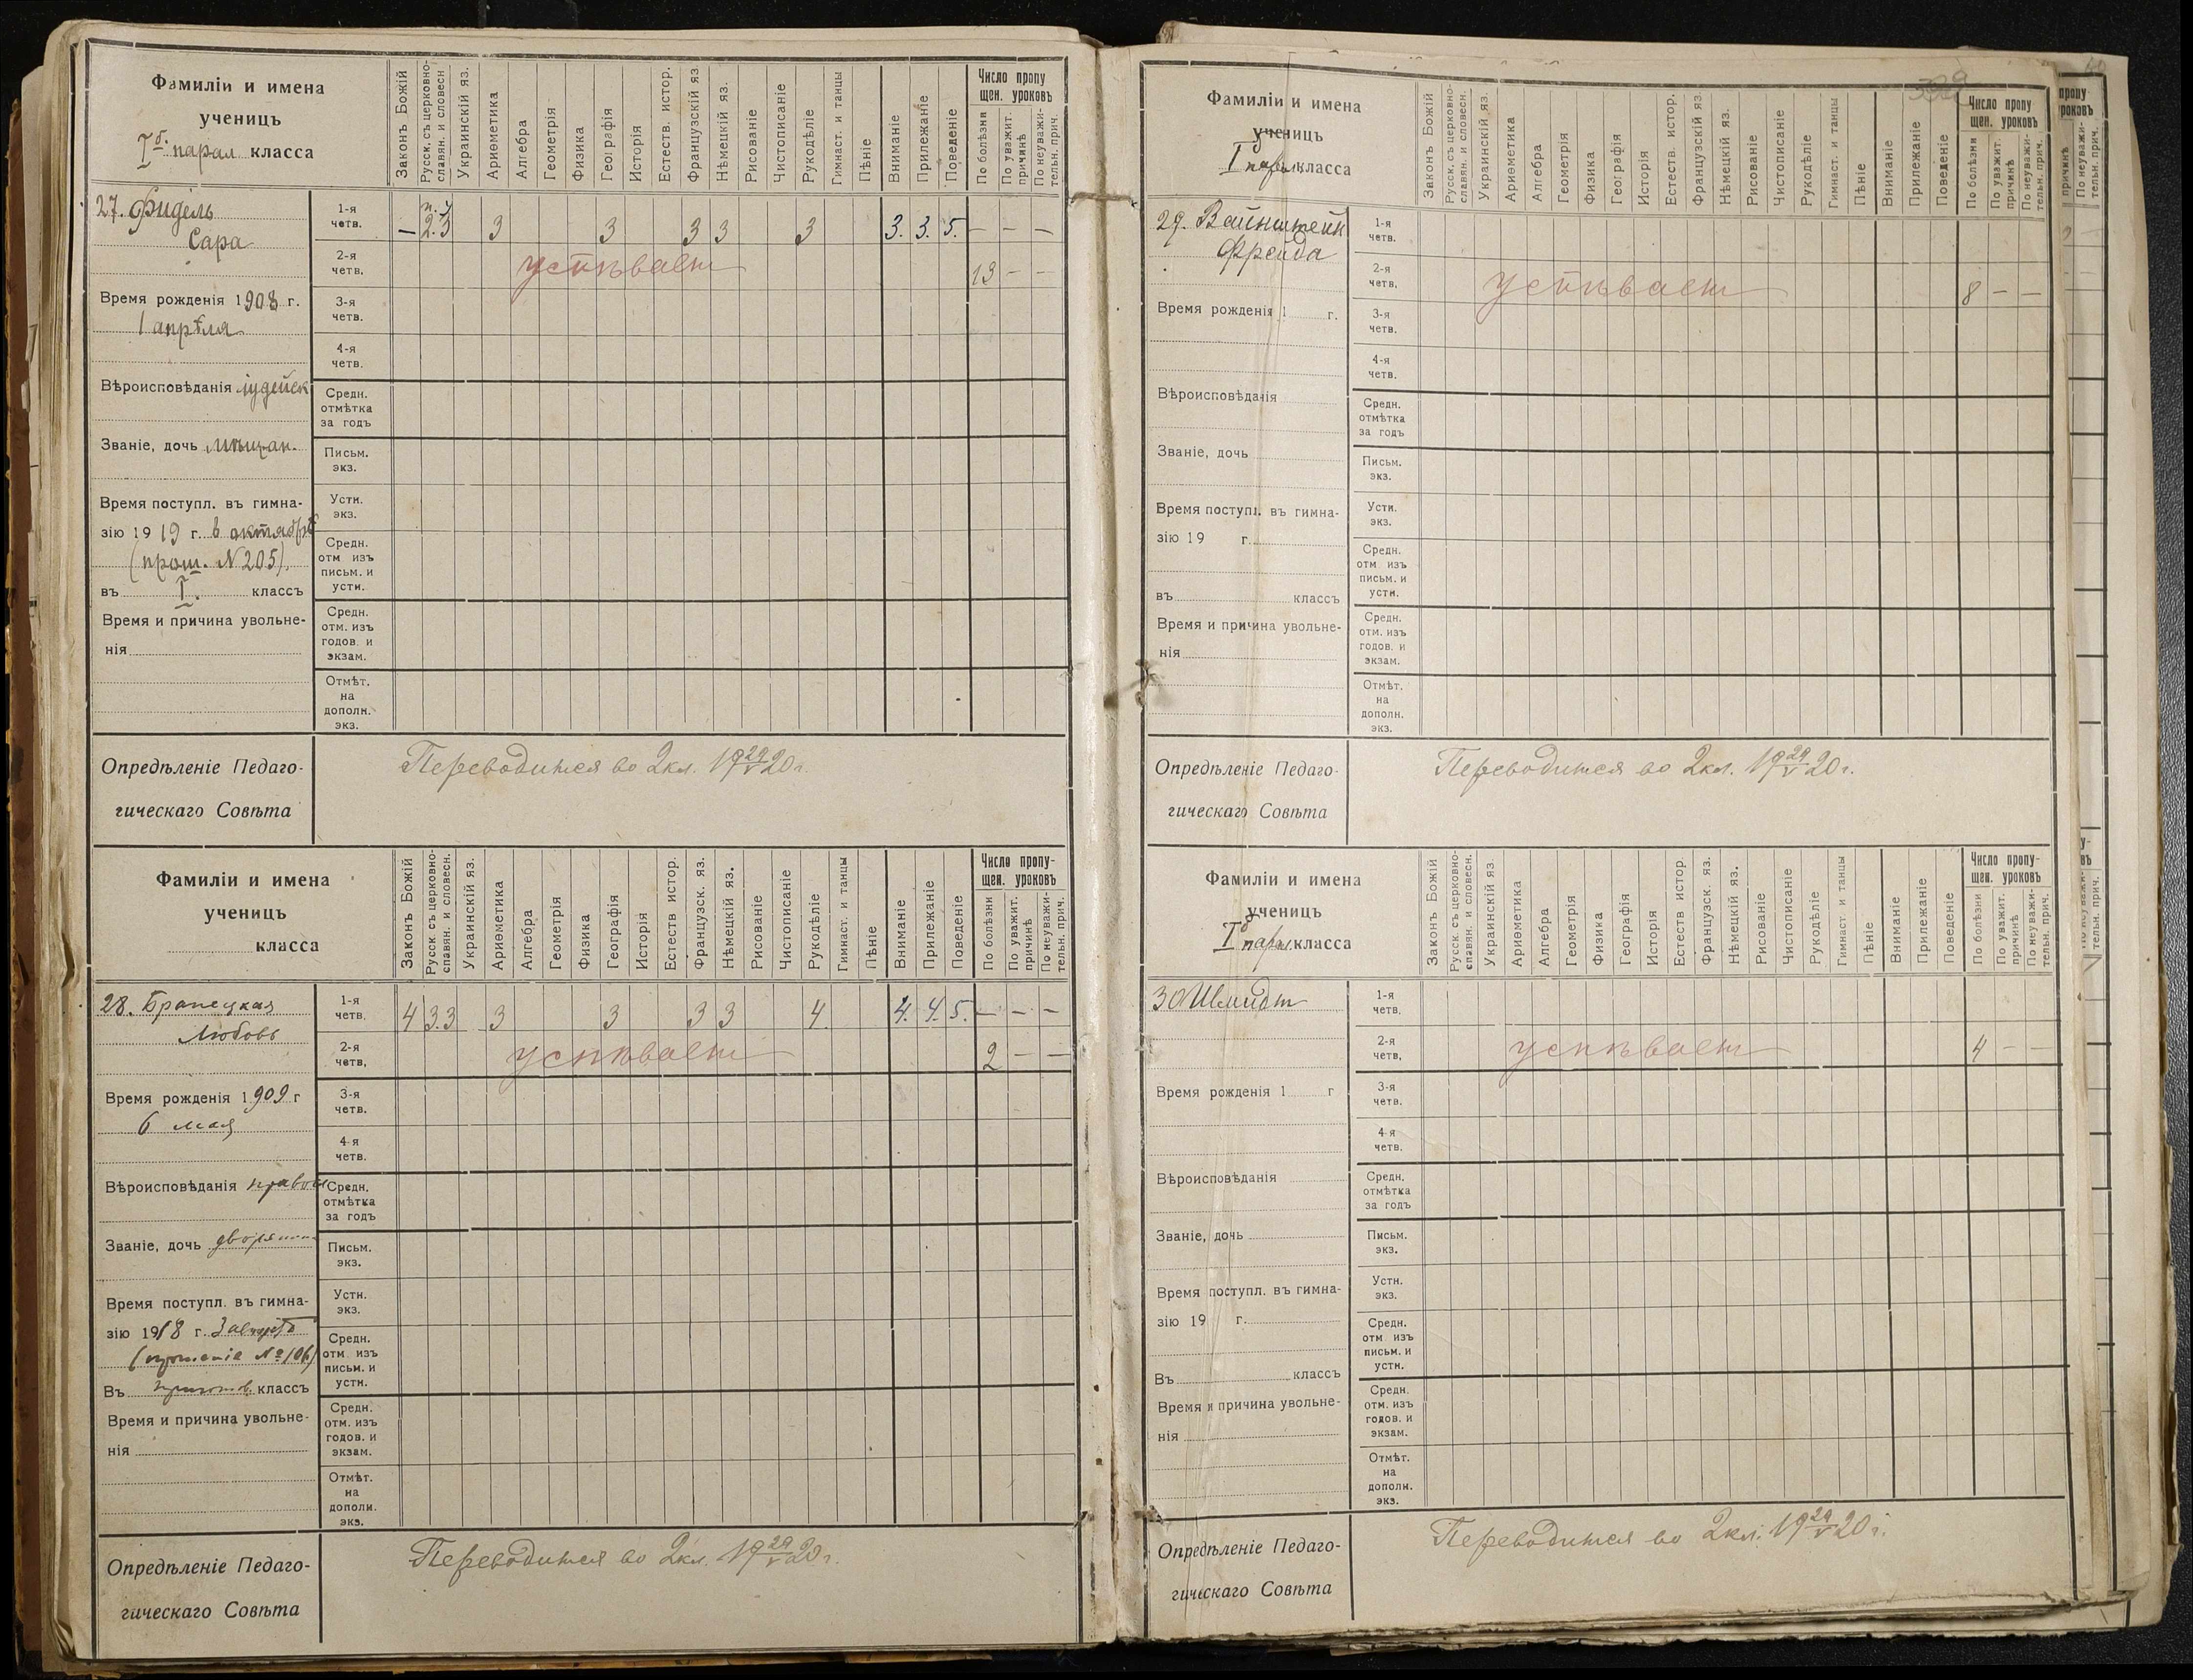 Фамиліи и имена
ученицъ
Iб. парал. класса
Законъ Божій
Русск. съ церковно-
славян. и словесн
Украинскій яз.
Ариѳметика
Алгебра
Геометрія
Физика
Географія
Исторія
Естеств. истор.
Французскій яз
Нѣмецкій яз.
Рисованіе
Чистописаніе
Рукодѣліе
Гимнаст. и танцы
Пѣніе
Вниманіе
Прилежаніе
Поведеніе
Число пропу
щен. уроковъ
По болѣзни
По уважит.
причинѣ
По неуважи-
тельн. прич.
27. Фидель
Сара
Время рожденія 1908 г.
1 апрѣля
Вѣроисповѣданія іудейск
Званіе, дочь мѣщан.
Время поступл. въ гимна-
зію 1919 г. в октябрѣ
(прош. N 205).
въ I. классъ
Время и причина увольне-
нія
1-я
четв.
— 2.3 3 3 3 3 3 3. 3. 5. — — —
2-я
четв.
успѣваетъ 13 — —
3-я
четв.
4-я
четв.
Средн.
отмѣтка
за годъ
Письм.
экз.
Устн.
экз.
Средн.
отм изъ
письм. и
устн.
Средн.
отм. изъ
годов. и
экзам.
Отмѣт.
на
дополн.
экз.
Опредѣленіе Педаго-
гическаго Совѣта
Переводится во 2 кл. 19 29/V 20 г.
Фамиліи и имена
ученицъ
класса
Законъ Божій
Русск. съ церковно-
славян. и словесн.
Украинскій яз.
Ариѳметика
Алгебра
Геометрія
Физика
Географія
Исторія
Естеств истор.
Французск. яз.
Нѣмецкій яз.
Рисованіе
Чистописаніе
Рукодѣліе
Гимнаст. и танцы
Пѣніе
Вниманіе
Прилежаніе
Поведеніе
Число пропу-
щен. уроковъ
По болѣзни
По уважит.
причинѣ
По неуважи-
тельн. прич.
28.
Любовь
Время рожденія 1909 г
6 мая
Вѣроисповѣданія правосл
Званіе, дочь дворянина
Время поступл. въ гимна-
зію 1918 г. 3 августа
(прошеніе № 106)
Въ приготов. классъ
Время и причина увольне-
нія
1-я
четв.
4 3.3 3 3 3 3 4 4. 4. 5. — — —
2-я
четв.
успѣваетъ 2 — —
3-я
четв.
4-я
четв.
Средн.
отмѣтка
за годъ
Письм.
экз.
Устн.
экз.
Средн.
отм изъ
письм. и
устн.
Средн.
отм. изъ
годов. и
экзам.
Отмѣт.
на
дополн.
экз.
Опредѣленіе Педаго-
гическаго Совѣта
Переводится во 2 кл. 19 29/V 20 г.
Фамиліи и имена
ученицъ
I б парал. класса
Законъ Божій
Русск. съ церковно-
славян. и словесн.
Украинскій яз.
Ариѳметика
Алгебра
Геометрія
Физика
Географія
Исторія
Естеств. истор.
Французскій яз
Нѣмецкій яз.
Рисованіе
Чистописаніе
Рукодѣліе
Гимнаст. и танцы
Пѣніе
Вниманіе
Прилежаніе
Поведеніе
Число пропу
щен. уроковъ
По болѣзни
По уважит.
причинѣ
По неуважи-
тельн. прич.
29. Вайнштейн
Фрейда
Время рожденія 1 г.
Вѣроисповѣданія
Званіе, дочь
Время поступл. въ гимна-
зію 19 г.
въ классъ
Время и причина увольне-
нія
1-я
четв.
2-я
четв.
успѣваетъ 8 — —
3-я
четв.
4-я
четв.
Средн.
отмѣтка
за годъ
Письм.
экз.
Устн.
экз.
Средн.
отм изъ
письм. и
устн.
Средн.
отм. изъ
годов. и
экзам.
Отмѣт.
на
дополн.
экз.
Опредѣленіе Педаго-
гическаго Совѣта
Переводится во 2 кл. 19 29/V 20 г.
Фамиліи и имена
ученицъ
I б парал. класса
Законъ Божій
Русск. съ церковно-
славян. и словесн.
Украинскій яз
Ариѳметика
Алгебра
Геометрія
Физика
Географія
Исторія
Естеств истор.
Французск. яз.
Нѣмецкій яз.
Рисованіе
Чистописаніе
Рукодѣліе
Гимнаст и танцы
Пѣніе
Вниманіе
Прилежаніе
Поведеніе
Число пропу-
щен. уроковъ
По болѣзни
По уважит.
причинѣ
По неуважи-
тельн. прич.
30 Шмидт
Время рожденія 1 г
Вѣроисповѣданія
Званіе, дочь
Время поступл. въ гимна-
зію 19 г.
Въ классъ
Время и причина увольне-
нія
1-я
четв.
2-я
четв,
успѣваетъ 4 — —
3-я
четв.
4-я
четв.
Средн.
отмѣтка
за годъ
Письм.
экз.
Устн.
экз.
Средн.
отм изъ
письм. и
устн.
Средн.
отм. изъ
годов. и
экзам.
Отмѣт.
на
дополн.
экз.
Опредѣленіе Педаго-
гическаго Совѣта
Переводится во 2 кл. 19 29/V 20 г.